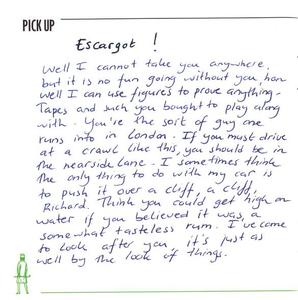 PICK UP
Escargot !
Well I cannot take you anywhere,
but it is no fun going without you, hon
Well I can use figures to prove anything -
Tapes and such you bought to play along
with. You're the sort of guy one
runs into in London. If you must drive
at a crawl like this, you should be in
the nearside lane. I sometimes think
the only thing to do with my car is
to push it over a cliff, a cliff,
Richard. Think you could get high on
water if you believed it was, a
somewhat tasteless rum. I've come
to look after you, it's just as
well by the look of things.